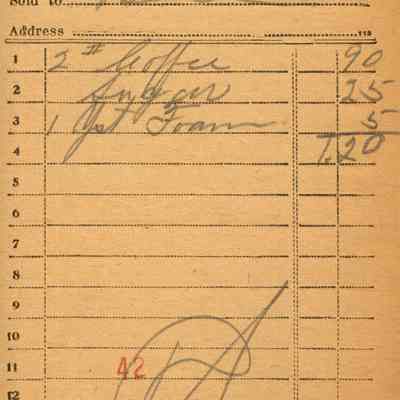 Sold to
Address 115
1 2 # Coffee 90
2 Sugar 25
3 1 Yst Foam 5
4 1.20
5
6
7
8
9
10
11 42
12